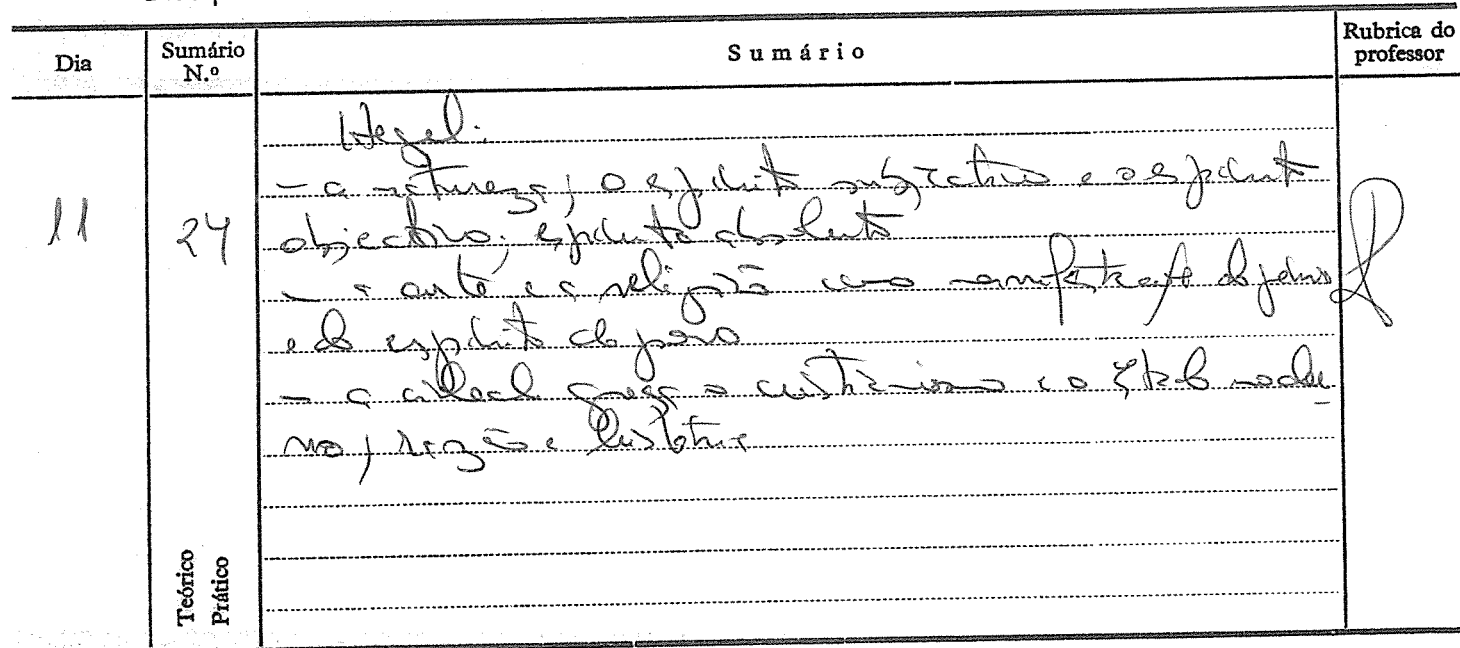 Dia
Sumário N.º
Sumário
Rubrica do professor
Hegel:
- a natureza; o espírito subjectivo e o espírito
11
24
objectivo; espírito absoluto
- a arte e a religião como manifestação do
e do espírito do povo
- a cidade grega o cristianismo e o Estado moder
no; razão e história
Teórico
Prático